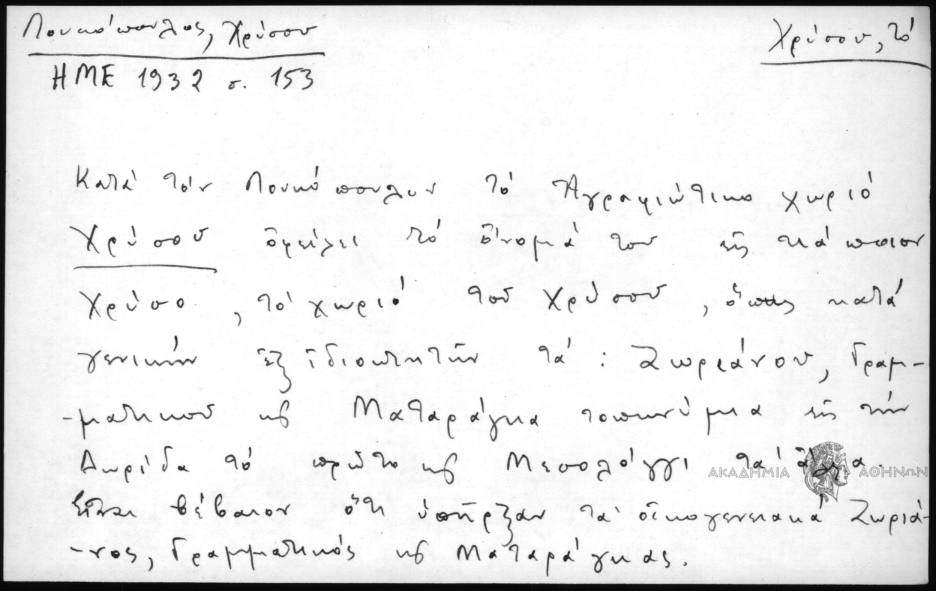 Λουκόπουλος, Χρύσου
Χρύσου, τό
ΗΜΕ 1932 σ. 153
Κατά τόν Λουκόπουλον τό Ἀγραφιώτικο χωριό
Χρύσου ὀφείλει τό ὄνομά του εἰς κάποιον
Χρύσο, τό χωριό τοῦ Χρύσου, ὅπως κατά
γενικήν ἐξ ἰδιοκτητῶν τά: Ζωριάνου, Γραμ-
-ματικοῦ κ Ματαράγκα τοπωνύμια εἰς τήν
Δωρίδα τό πρῶτο κ Μεσολόγγι τά ἄλλα
Εἶναι βέβαιον ὅτι ὑπῆρξαν τά οἰκογενειακά Ζωριά-
-νος, Γραμματικός κ Ματαράγκας.
ΑΚΑΔΗΜΙΑ ΑΘΗΝΩΝ